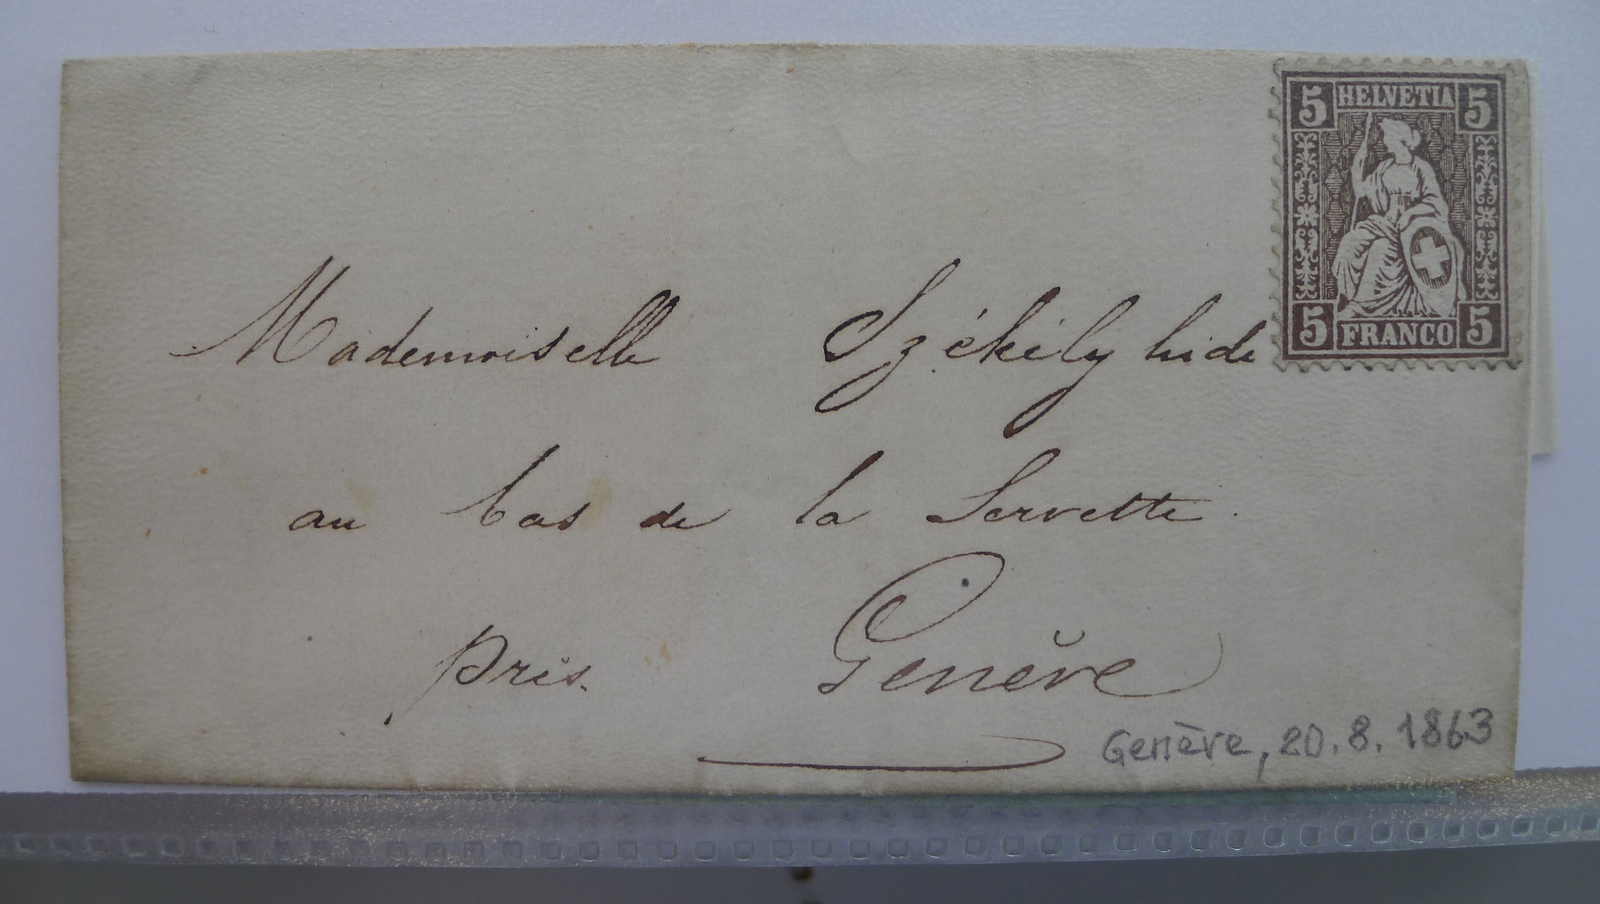 5 HELVETIA 5
5 FRANCO 5
Mademoiselle Székélyhide
au bas de la Servette.
près Genève
Genève, 20.8.1863